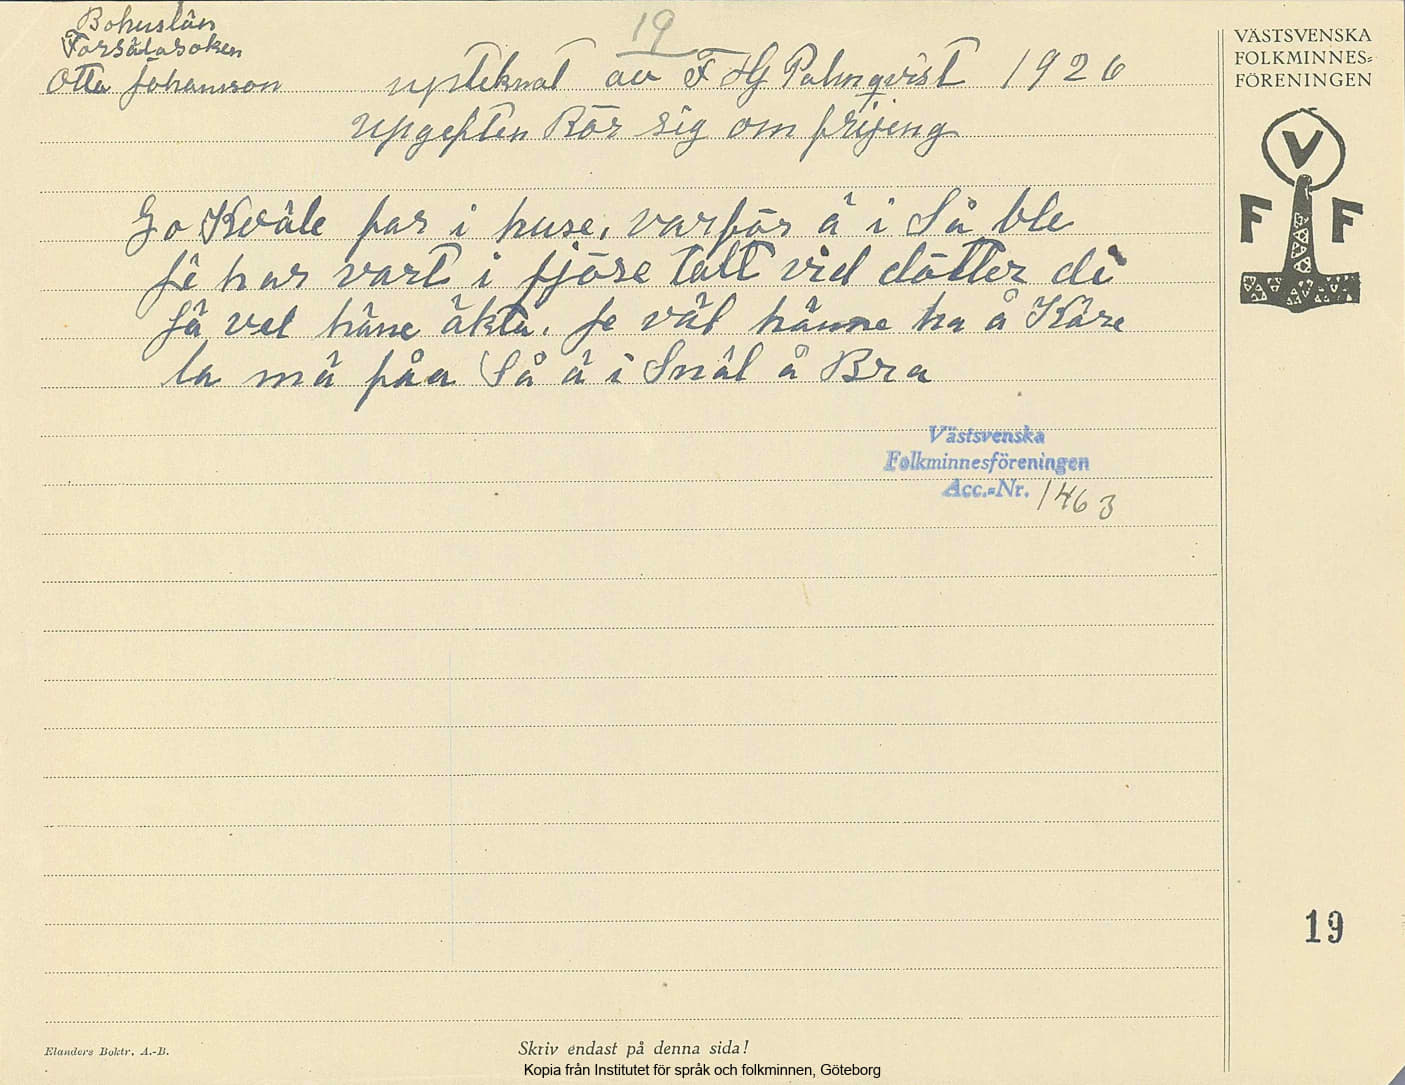 Bohuslän
Torsälasoken
Otto Johanson
19
upteknat av F HG Palmqvist 1926
upgeften Rör sig om frijeng
Go Kväle far i huse, varför ä i Så ble
Je har vart i fjöse Tatt vid dötter di
Jä vel häne äkta. Je väl hänne ha å Käre
la mä fåa Så ä i Snäl å Bra
Västsvenska
Folkminnesföreningen
Acc.-Nr. 1463
VÄSTSVENSKA
FOLKMINNES=
FÖRENINGEN
V
F F
19
Elanders Boktr. A.-B.
Skriv endast på denna sida!
Kopia från Institutet för språk och folkminnen, Göteborg